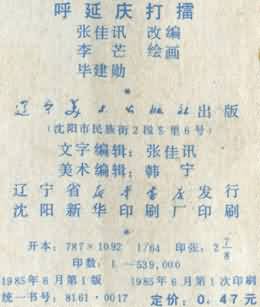 呼延庆打擂
张佳讯 改编
李芒 绘画
毕建勋
辽宁美术出版社出版
(沈阳市民族街2段5里6号)
文字编辑: 张佳讯
美术编辑: 韩宁
辽宁省新华书店发行
沈阳新华印刷厂印刷
开本: 787×1092 1/64 印张: 2 7/8
印数: 1—539,000
1985年6月第1版 1985年6月第1次印刷
统一书号: 8161·0017 定价: 0.47元